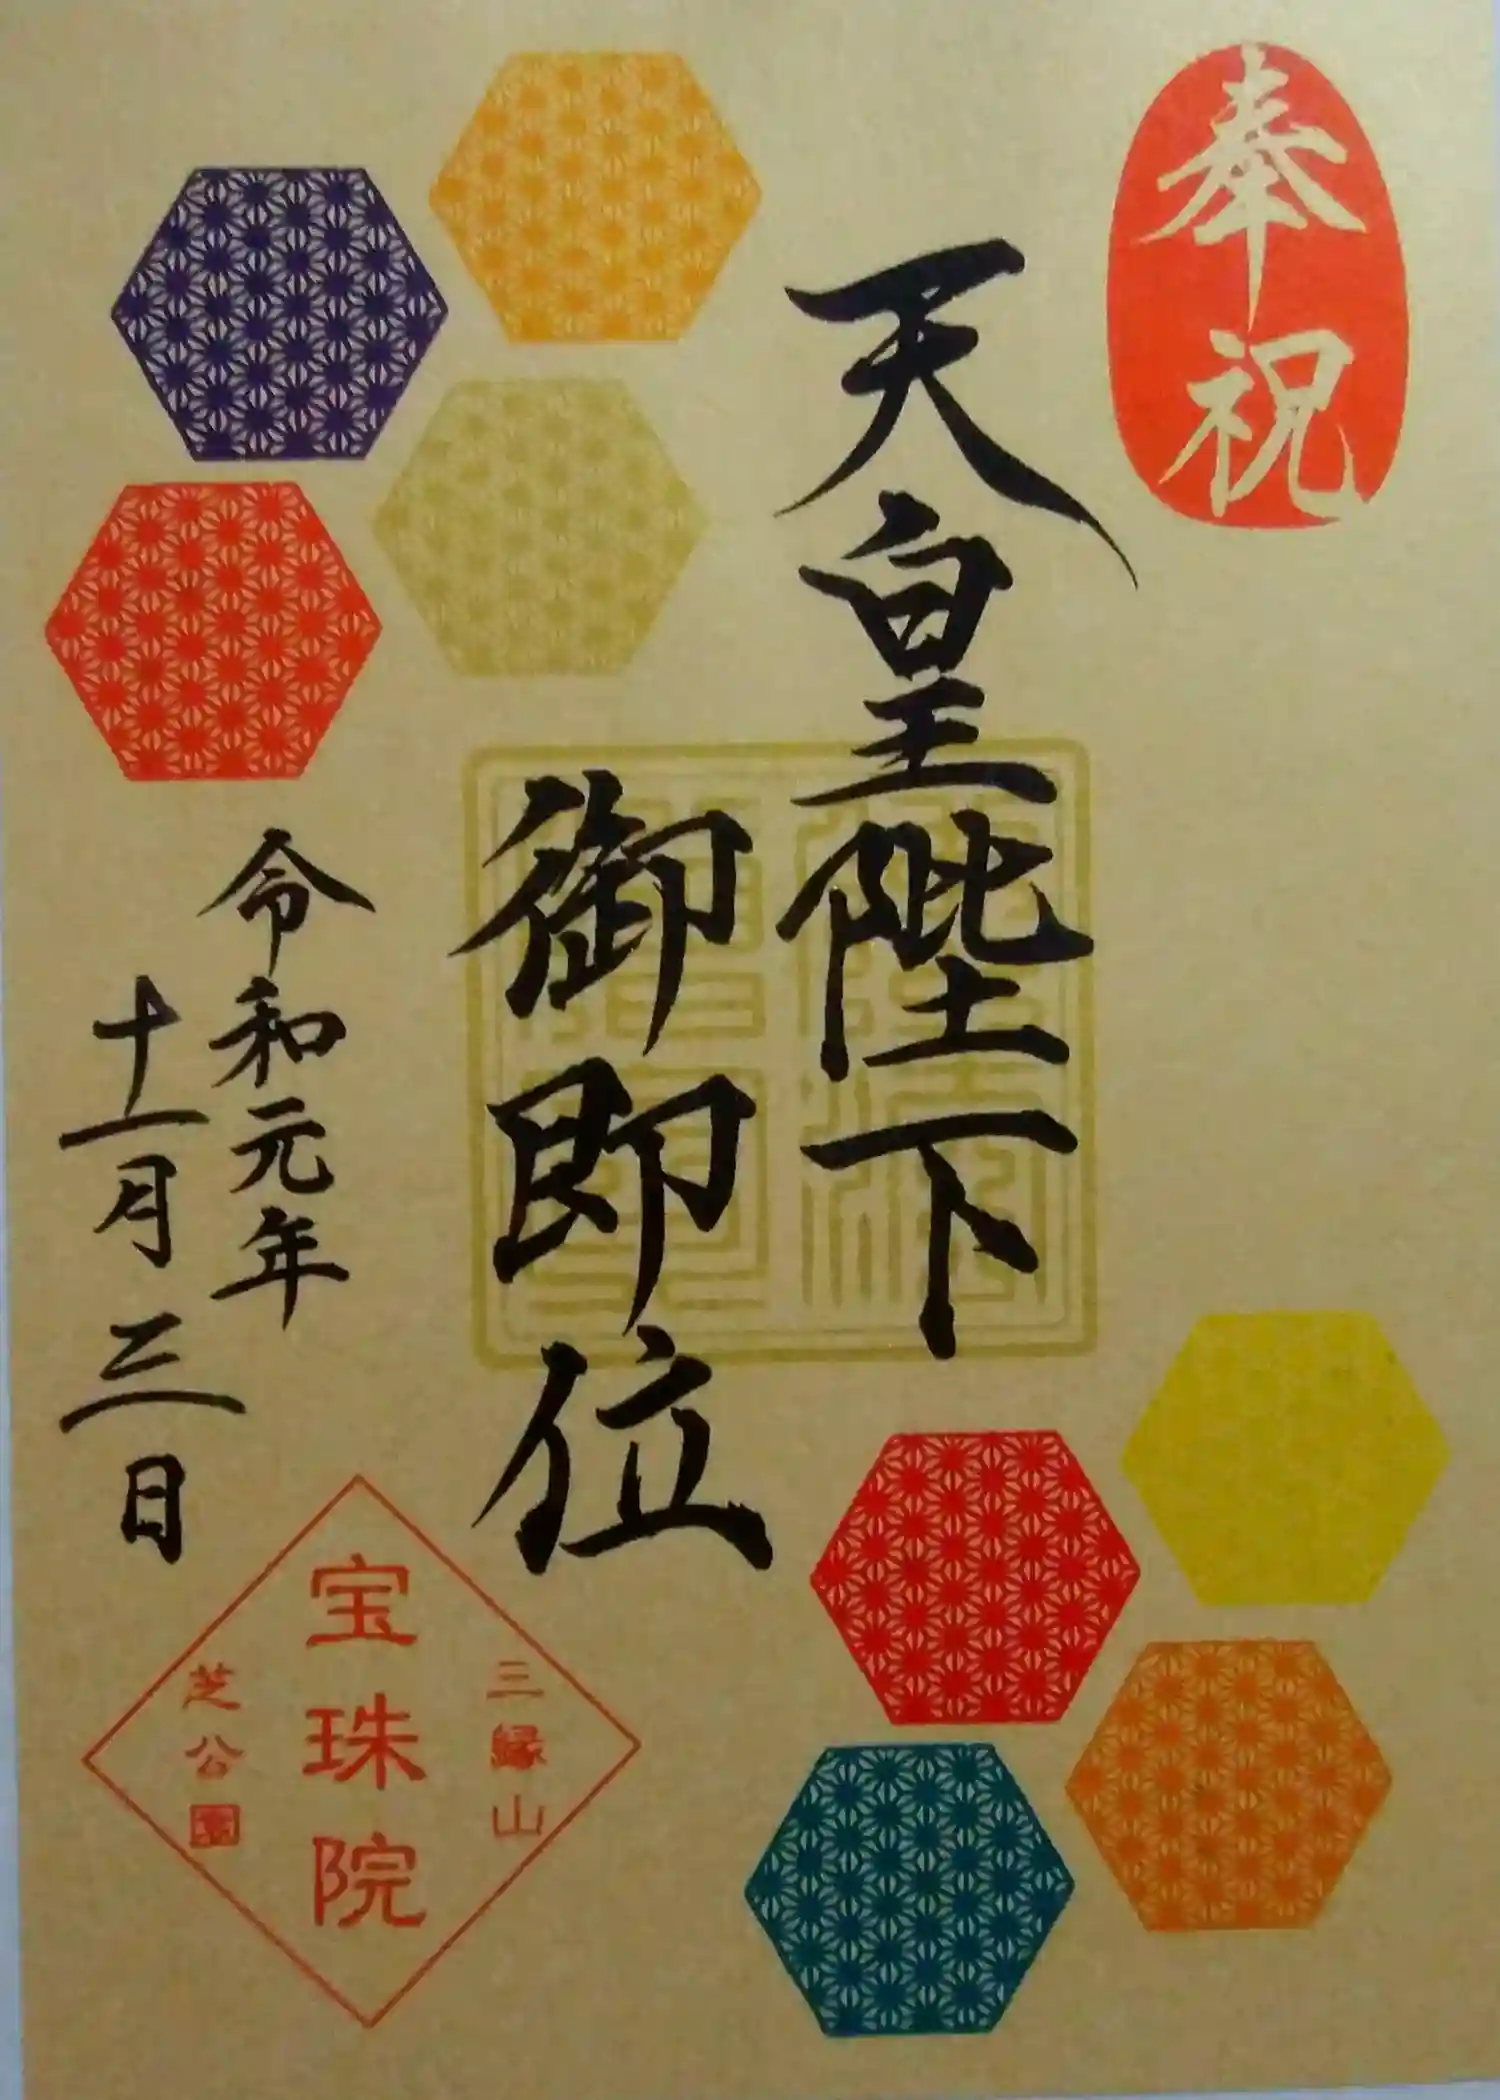 奉祝
天皇陛下
御即位
令和元年
十一月三日
三縁山
宝珠院
芝公園